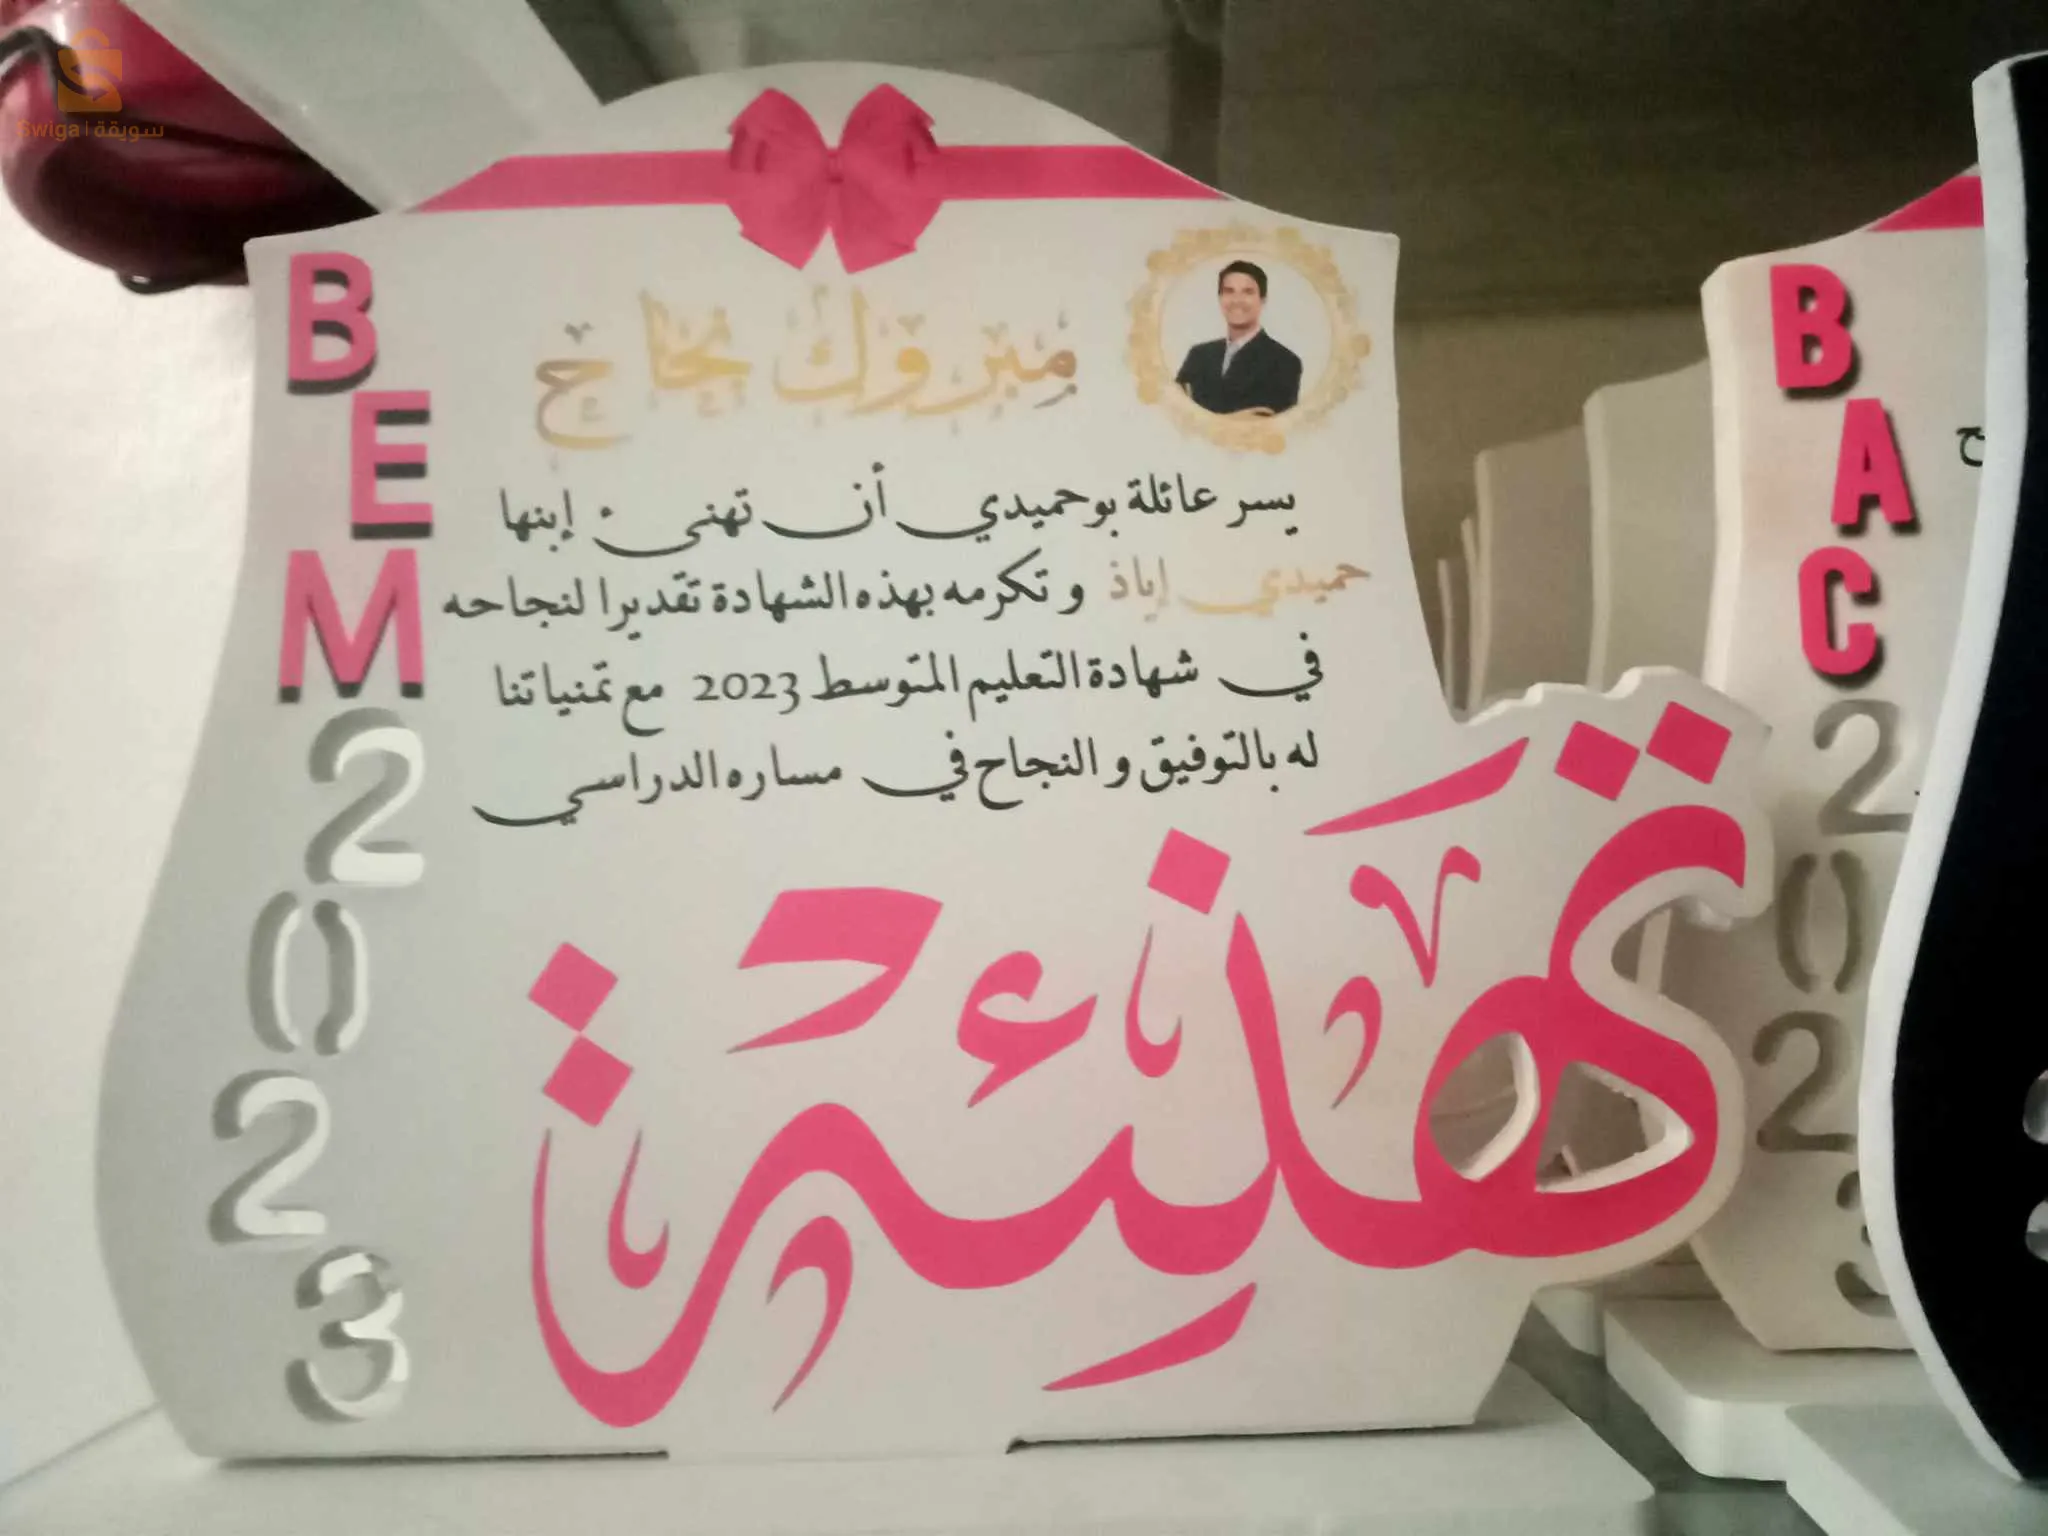 Swiga | سويقة
BEM
2023
مبروك نجاح
يسر عائلة بوحميدي أن تهنئ إبنها
حميدي إياذ و تكرمه بهذه الشهادة تقديرا لنجاحه
في شهادة التعليم المتوسط 2023 مع تمنياتنا
له بالتوفيق و النجاح في مساره الدراسي
تهنئة
BAC
2023